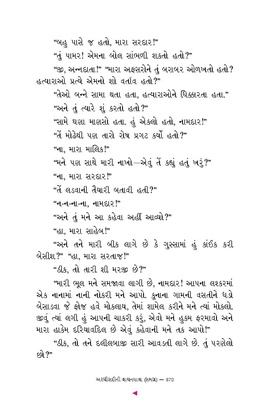 “બહુ પાસે જ હતો, મારા સરદાર!”
“તું પામર! એમના બોલ સાંભળી શકતો હતો?”
“જી, અન્નદાતા!” “મારા અફસરોને તું બરાબર ઓળખતો હતો?
હત્યારાઓ પ્રત્યે એમનો શો વર્તાવ હતો?”
“તેઓ બન્ને સામા થતા હતા, હત્યારાઓને ધિક્કારતા હતા.”
“અને તું ત્યારે શું કરતો હતો?”
“સામે ઘણા માણસો હતા. હું એકલો હતો, નામદાર!”
“તેં મોઢેથી પણ તારો રોષ પ્રગટ કર્યો હતો?”
“ના, મારા માલિક!”
“મને પણ સાથે મારી નાખો—એવું તેં કહ્યું હતું ખરું?”
“ના, મારા સરદાર!”
“તેં લડવાની તૈયારી બતાવી હતી?”
“ન-ન-ના-ના, નામદાર!”
“અને તું મને આ કહેવા અહીં આવ્યો?”
“હા, મારા સાહેબ!”
“અને તને મારી બીક લાગે છે કે ગુસ્સામાં હું કાંઈક કરી
બેસીશ?” “હા, મારા સરતાજ!”
“ઠીક, તો તારી શી મરજી છે?”
“મારી ભૂલ મને સમજાવા લાગી છે, નામદાર! આપના લશ્કરમાં
એક નાનામાં નાની નોકરી મને આપો. કુનાના ગામની વસતીને ઘડો
બેસાડવા જે ફોજ હવે મોકલાય, તેમાં સામેલ કરીને મને ત્યાં મોકલો.
જીવું ત્યાં લગી હું આપની ચાકરી કરું, એવો મને હુકમ ફરમાવો અને
મારા હાકેમ દરિયાવદિલ છે એવું કહેવાની મને તક આપો!”
“ઠીક, તો તને દલીલબાજી સારી આવડતી લાગે છે. તું પરણેલો
છો?”